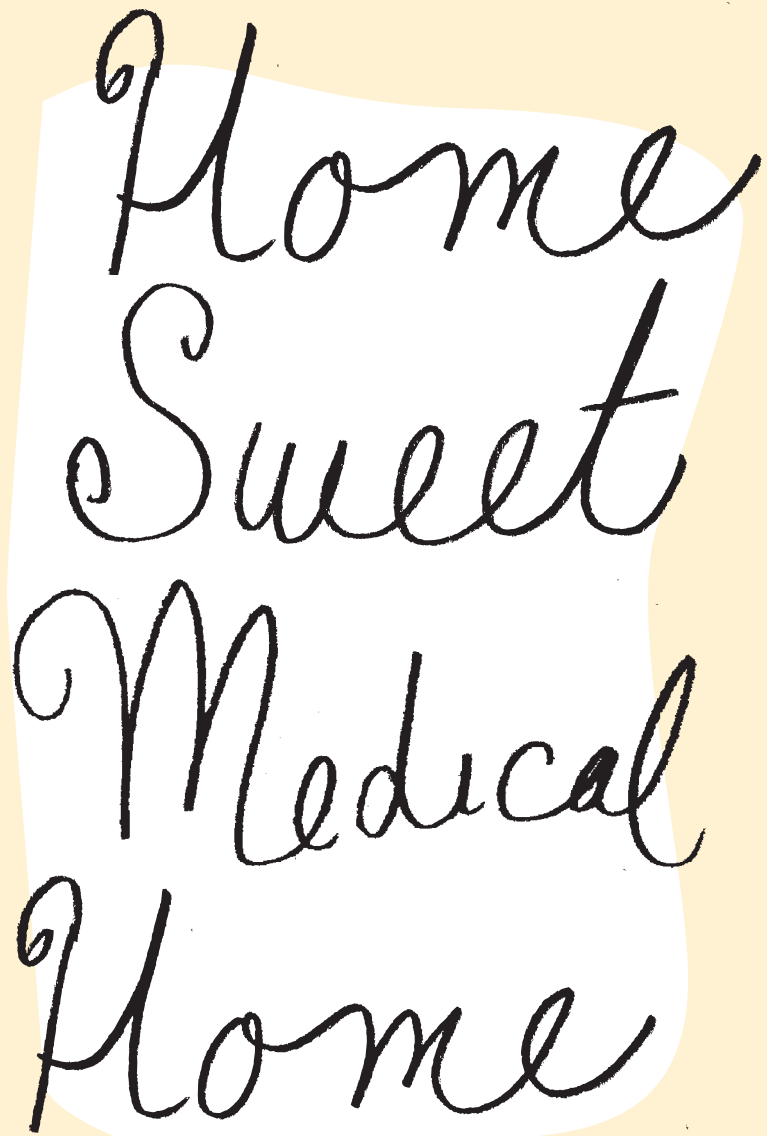 Home
Sweet
Medical
Home